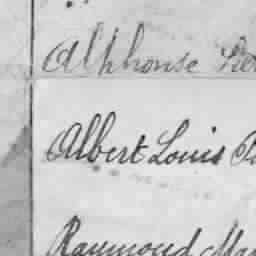 Alphonse
Albert Louis
Raymond